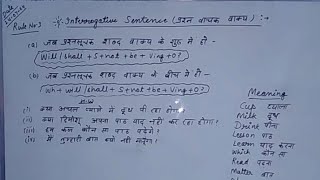 Rule No:3 :* Interrogative Sentence (प्रश्न वाचक वाक्य) :→
(a) जब प्रश्नसूचक शब्द वाक्य के शुरू में हो -
Will/shall + S + not + be + Ving + O?
(b) जब प्रश्नसूचक शब्द वाक्य के बीच में हो -
Wh + will/shall + S + not + be + Ving + O?
(i) क्या अचल प्याले में दूध पी रहा होगा?
(ii) क्या हिमांशु अपना पाठ याद नहीं कर रहा होगा?
(iii) हम कल कौन सा पाठ पढ़ेंगे?
(iv) मैं तुम्हारी बात क्यों नहीं
Meaning
Cup प्याला
Milk दूध
Drink पीना
Lesson पाठ
Learn याद करना
Which कौन सा
Read पढ़ना
Matter बात